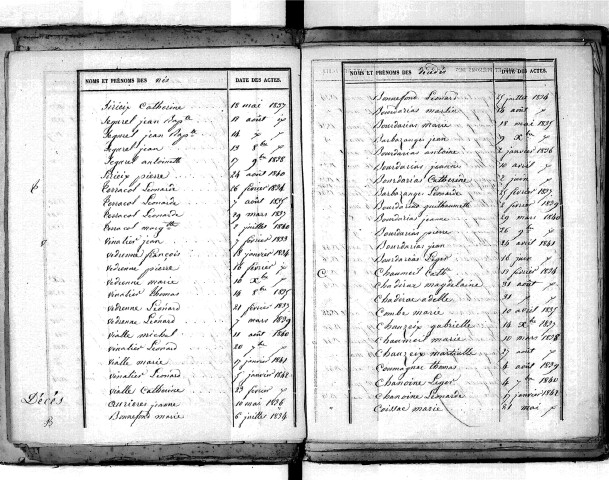 NOMS ET PRÉNOMS DES nés DATE DES ACTES.
Catherine 18 mai 1837
Seguret jean Bapte 11 août
Seguret jean Bapte 14
Seguret jean 19 8bre
Seguret antoinette 17 9bre 1838
pierre 24 août 1840
Terracol Léonarde 16 février 1834
Terracol Léonarde 7 août 1835
Terracol Léonard 29 mars 1837
Terracol margtte 2 juillet 1840
Vinatier jean 7 février 1833
Vedrenne françois 18 janvier 1834
Vedrenne pierre 16 février
Vedrenne marie 10 Xbre
Vinatier Thomas 14 8bre 1835
Vedrenne Léonard 21 février 1837
Vedrenne Léonard 7 mars 1839
Vialle michel 11 août 1840
Vinatier Léonard 20
Vialle marie janvier 1841
Vinatier Léonard janvier 1842
Vialle Catherine 23 février
Décès
jeanne 10 mai 1834
Bonnefond marie 6 juillet 1834
NOMS ET PRÉNOMS DES Décédés DATE DES ACTES.
Bonnefond Léonard juillet 1834
Bourdarias martin août
Bourdarias marie 18 mai 1835
Barbazange jean Xbre
Bourdarias antoine 2 janvier 1836
Bourdarias jeanne 10 avril
Bourdarias Catherine 2 juin
Barbazange Léonarde février 1837
Bourdarias guilhaumette 2 février 1839
Bourdarias jeanne 29 mars 1840
Bourdarias pierre 26 9bre
Bourdarias jean 24 avril 1841
Bourdarias Léger 16 juin
C
Chaumeil Cath. février 1834
Chadirac magdelaine 31 août
Chadirac adelle 31
Combe marie 10 avril 1835
Chauzeix gabrielle 14 Xbre 1837
Chaumeil marie 10 mars 1838
Chauzeix martialle août
Commagnac thomas 4 août 1839
Chanoine Léger 4 1840
Chanoine Léonarde janvier 1842
Coissac marie 21 mai